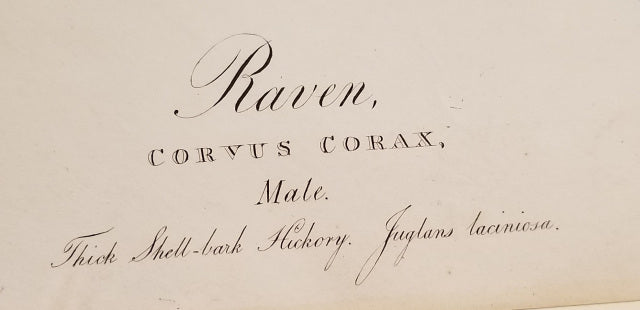 Raven,
CORVUS CORAX,
Male.
Thick Shell-bark Hickory. Juglans laciniosa.